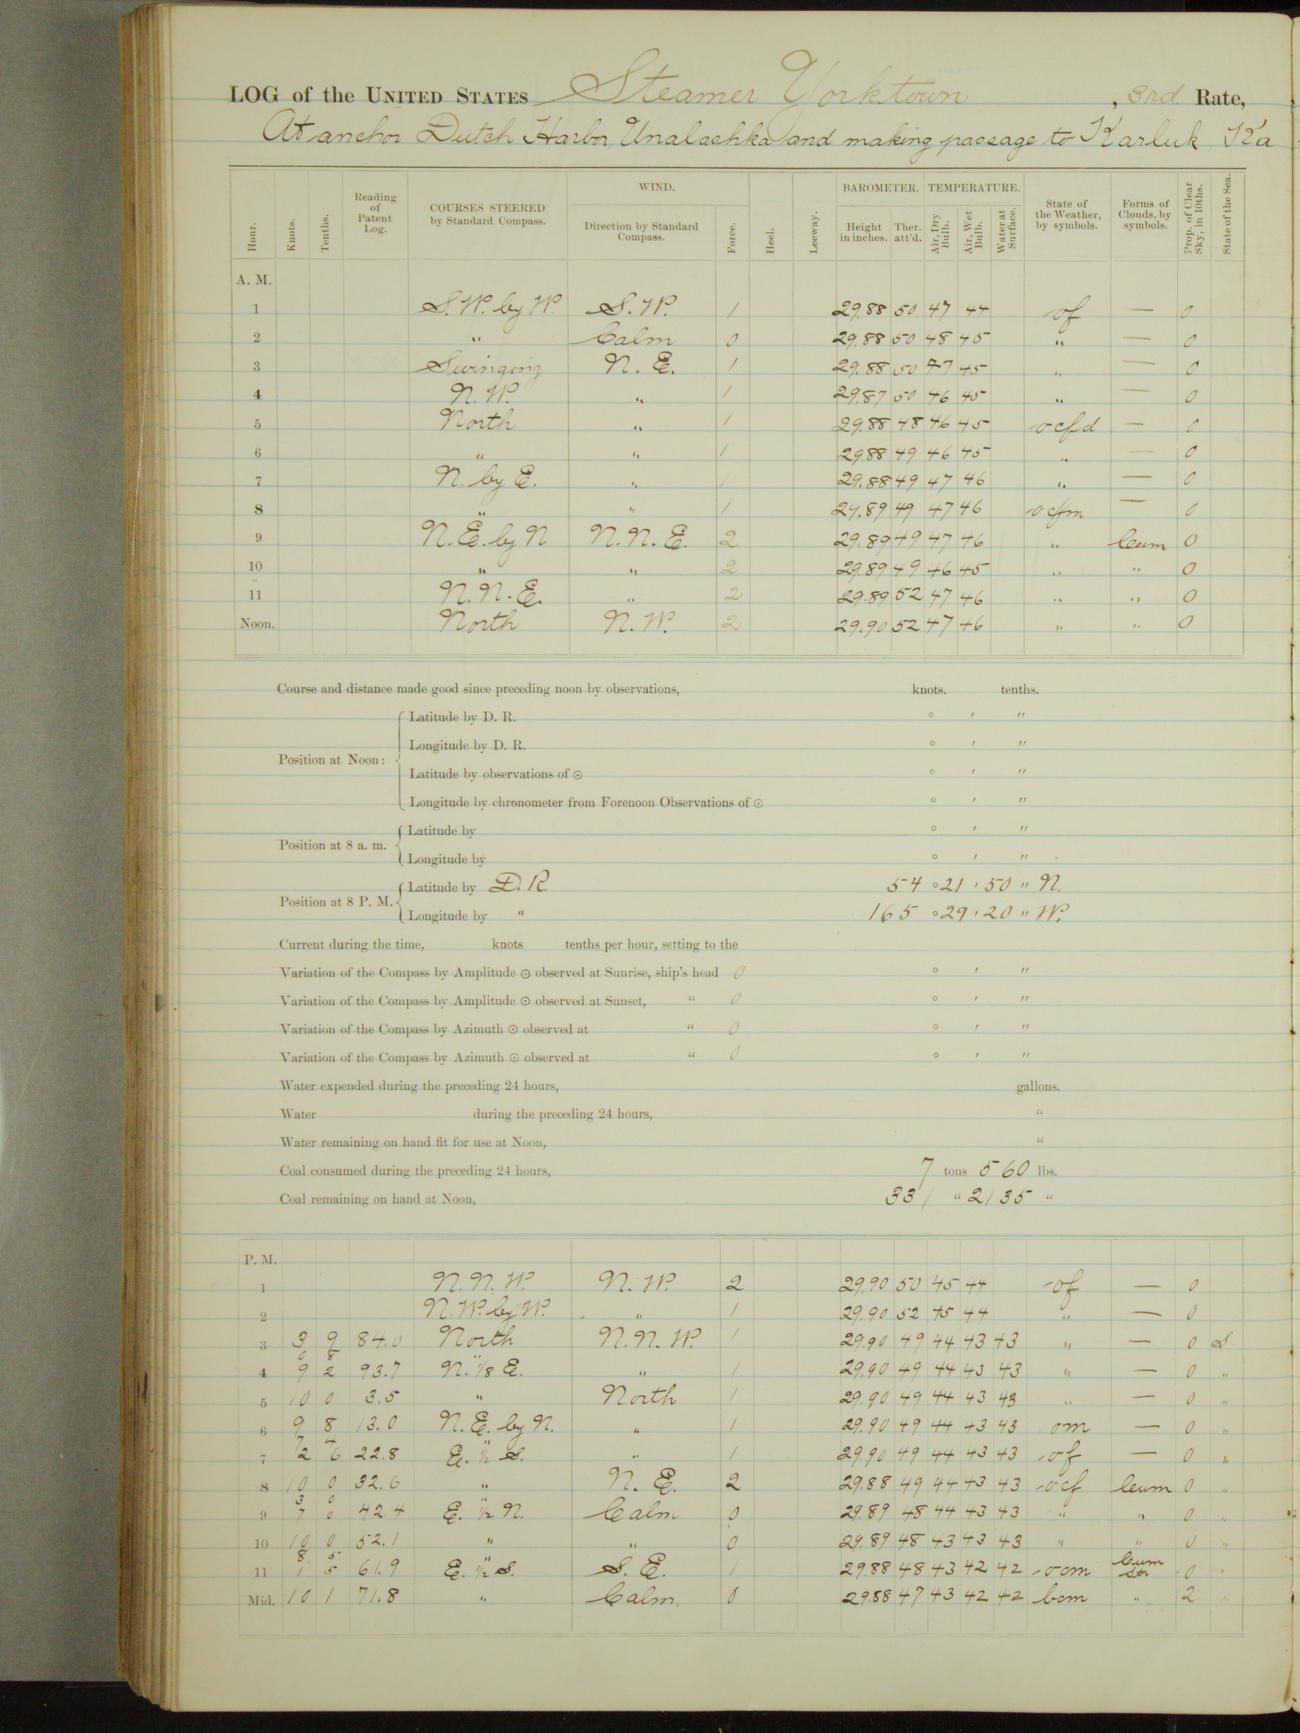 LOG of the UNITED STATES Steamer Yorktown, 3rd Rate,
At anchor Dutch Harbor, Unalashka and making passage to Karluk Ka
Hour. Knots. Tenths. Reading of Patent Log. COURSES STEERED by Standard Compass. WIND. Direction by Standard Compass. Force. Heel. Leeway. BAROMETER. Height in inches. Ther. att'd. TEMPERATURE. Air, Dry Bulb. Air, Wet Bulb. Water at Surface. State of the Weather, by symbols. Forms of Clouds, by symbols. Prop. of Clear Sky, in 10ths. State of the Sea.
A. M.
1 S.W. by W. S.W. 1 29.88 50 47 44 of — 0
2 " Calm 0 29.88 50 48 45 " — 0
3 Swinging N.E. 1 29.88 50 47 45 " — 0
4 N.W. " 1 29.87 50 46 45 " — 0
5 North " 1 29.88 48 46 45 ocfd — 0
6 " " 1 29.88 49 46 45 " — 0
7 N. by E. " 1 29.88 49 47 46 " — 0
8 " " 1 29.89 49 47 46 ocfm — 0
9 N.E. by N N.N.E. 2 29.89 49 47 46 " Cum 0
10 " " 2 29.89 49 46 45 " " 0
11 N.N.E. " 2 29.89 52 47 46 " " 0
Noon. North N.W. 2 29.90 52 47 46 " " 0
Course and distance made good since preceding noon by observations, knots. tenths.
Position at Noon: Latitude by D. R. ° ' "
Longitude by D. R. ° ' "
Latitude by observations of ☉ ° ' "
Longitude by chronometer from Forenoon Observations of ☉ ° ' "
Position at 8 a. m. Latitude by ° ' "
Longitude by ° ' "
Position at 8 P. M. Latitude by D.R. 54 ° 21 ' 50 " N.
Longitude by " 165 ° 29 ' 20 " W.
Current during the time, knots tenths per hour, setting to the
Variation of the Compass by Amplitude ☉ observed at Sunrise, ship's head 0 ° ' "
Variation of the Compass by Amplitude ☉ observed at Sunset, " 0 ° ' "
Variation of the Compass by Azimuth ☉ observed at " 0 ° ' "
Variation of the Compass by Azimuth ☉ observed at " 0 ° ' "
Water expended during the preceding 24 hours, gallons.
Water during the preceding 24 hours, "
Water remaining on hand fit for use at Noon, "
Coal consumed during the preceding 24 hours, 7 tons 560 lbs.
Coal remaining on hand at Noon, 331 " 2135 "
P. M.
1 N.N.W. N.W. 2 29.90 50 45 44 of — 0
2 N.W. by W. " 1 29.90 52 45 44 " — 0
3 3 9 84.0 North N.N.W. 1 29.90 49 44 43 43 " — 0 S
0 8 "
4 9 2 93.7 N. 1/8 E. " 1 29.90 49 44 43 43 " — 0 "
5 10 0 3.5 " North 1 29.90 49 44 43 43 " — 0 "
6 9 8 13.0 N.E. by N. " 1 29.90 49 44 43 43 om — 0 "
7 4 "
7 2 6 22.8 E. 1/2 S. " 1 29.90 49 44 43 43 of — 0 "
8 10 0 32.6 " N.E. 2 29.88 49 44 43 43 ocf Cum 0 "
3 0 "
9 7 0 42.4 E. 1/2 N. Calm 0 29.89 48 44 43 43 " " 0 "
10 10 0 52.1 " " 0 29.89 48 43 43 43 " " 0 "
8 5 " Cum
11 1 5 61.9 E. 1/2 S. S.E. 1 29.88 48 43 42 42 ocm Str 0 "
Mid. 10 1 71.8 " Calm. 0 29.88 47 43 42 42 bcm " 2 "